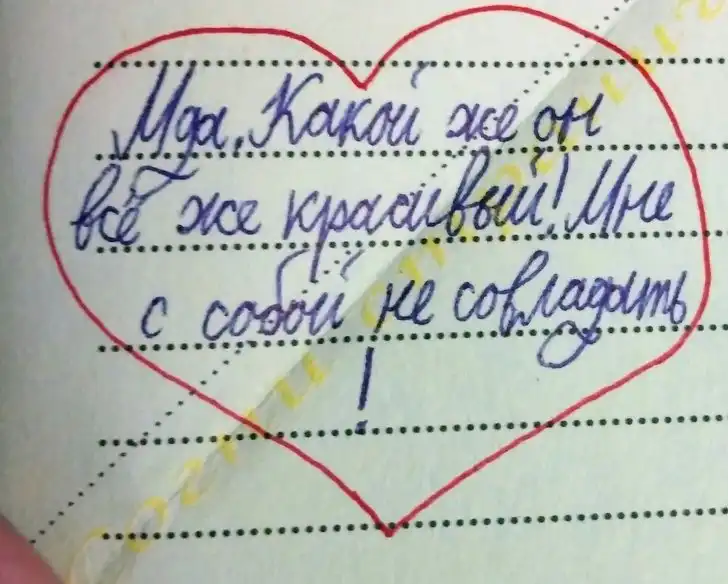 Мда. Какой же он
всё же красивый! Мне
с собой не совладать
!
Согни и отогни